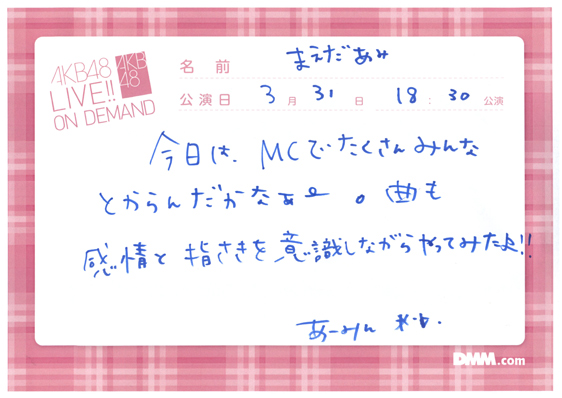 AKB48
LIVE!!
ON DEMAND
AKB
48
名前 まえだあみ
公演日 3月31日 18:30公演
今日は、MCでたくさんみんな
とからんだかなぁー。曲も
感情と指さきを意識しながらやってみたよ!!
あーみん
DMM.com